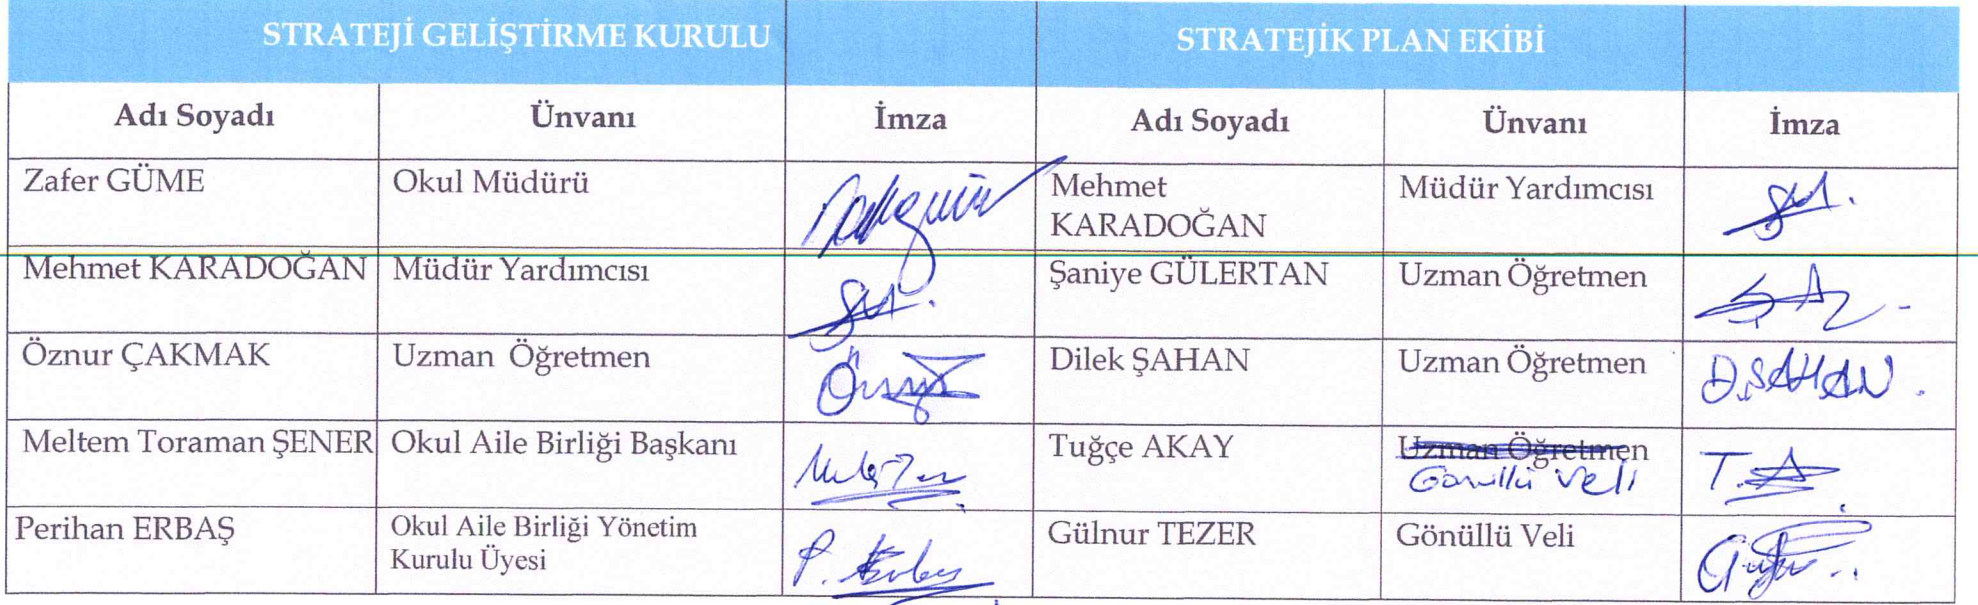 STRATEJİ GELİŞTİRME KURULU STRATEJİK PLAN EKİBİ
Adı Soyadı Ünvanı İmza Adı Soyadı Ünvanı İmza
Zafer GÜME Okul Müdürü Mehmet Müdür Yardımcısı
KARADOĞAN
Mehmet KARADOĞAN Müdür Yardımcısı Şaniye GÜLERTAN Uzman Öğretmen
Öznur ÇAKMAK Uzman Öğretmen Dilek ŞAHAN Uzman Öğretmen D.ŞAHAN.
Meltem Toraman ŞENER Okul Aile Birliği Başkanı Tuğçe AKAY Uzman Öğretmen
Gönüllü Veli T.A
Perihan ERBAŞ Okul Aile Birliği Yönetim Gülnur TEZER Gönüllü Veli
Kurulu Üyesi P. Erbaş